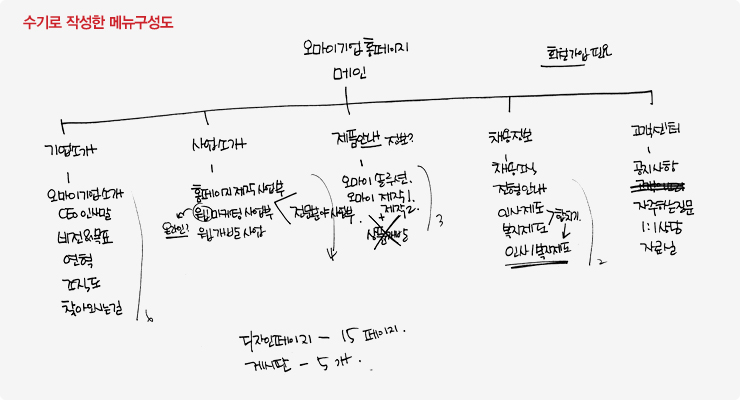 수기로 작성한 메뉴구성도
오마이기업 홈페이지
메인
회원가입 필요
기업소개
오마이기업소개
CEO 인사말
비전&목표
연혁
조직도
찾아오시는길
6
사업소개
홈페이지 제작 사업부
웹마케팅 사업부
온라인?
웹개발 사업
제품안내 정보?
오마이 솔루션.
오마이 제작1.
+ 제작2.
3
채용정보
채용소식
전형안내
인사제도
복지제도
합치기.
인사/복지제도
2
고객센터
공지사항
자주하는질문
1:1상담
자료실
디자인페이지 - 15 페이지.
게시판 - 5개.